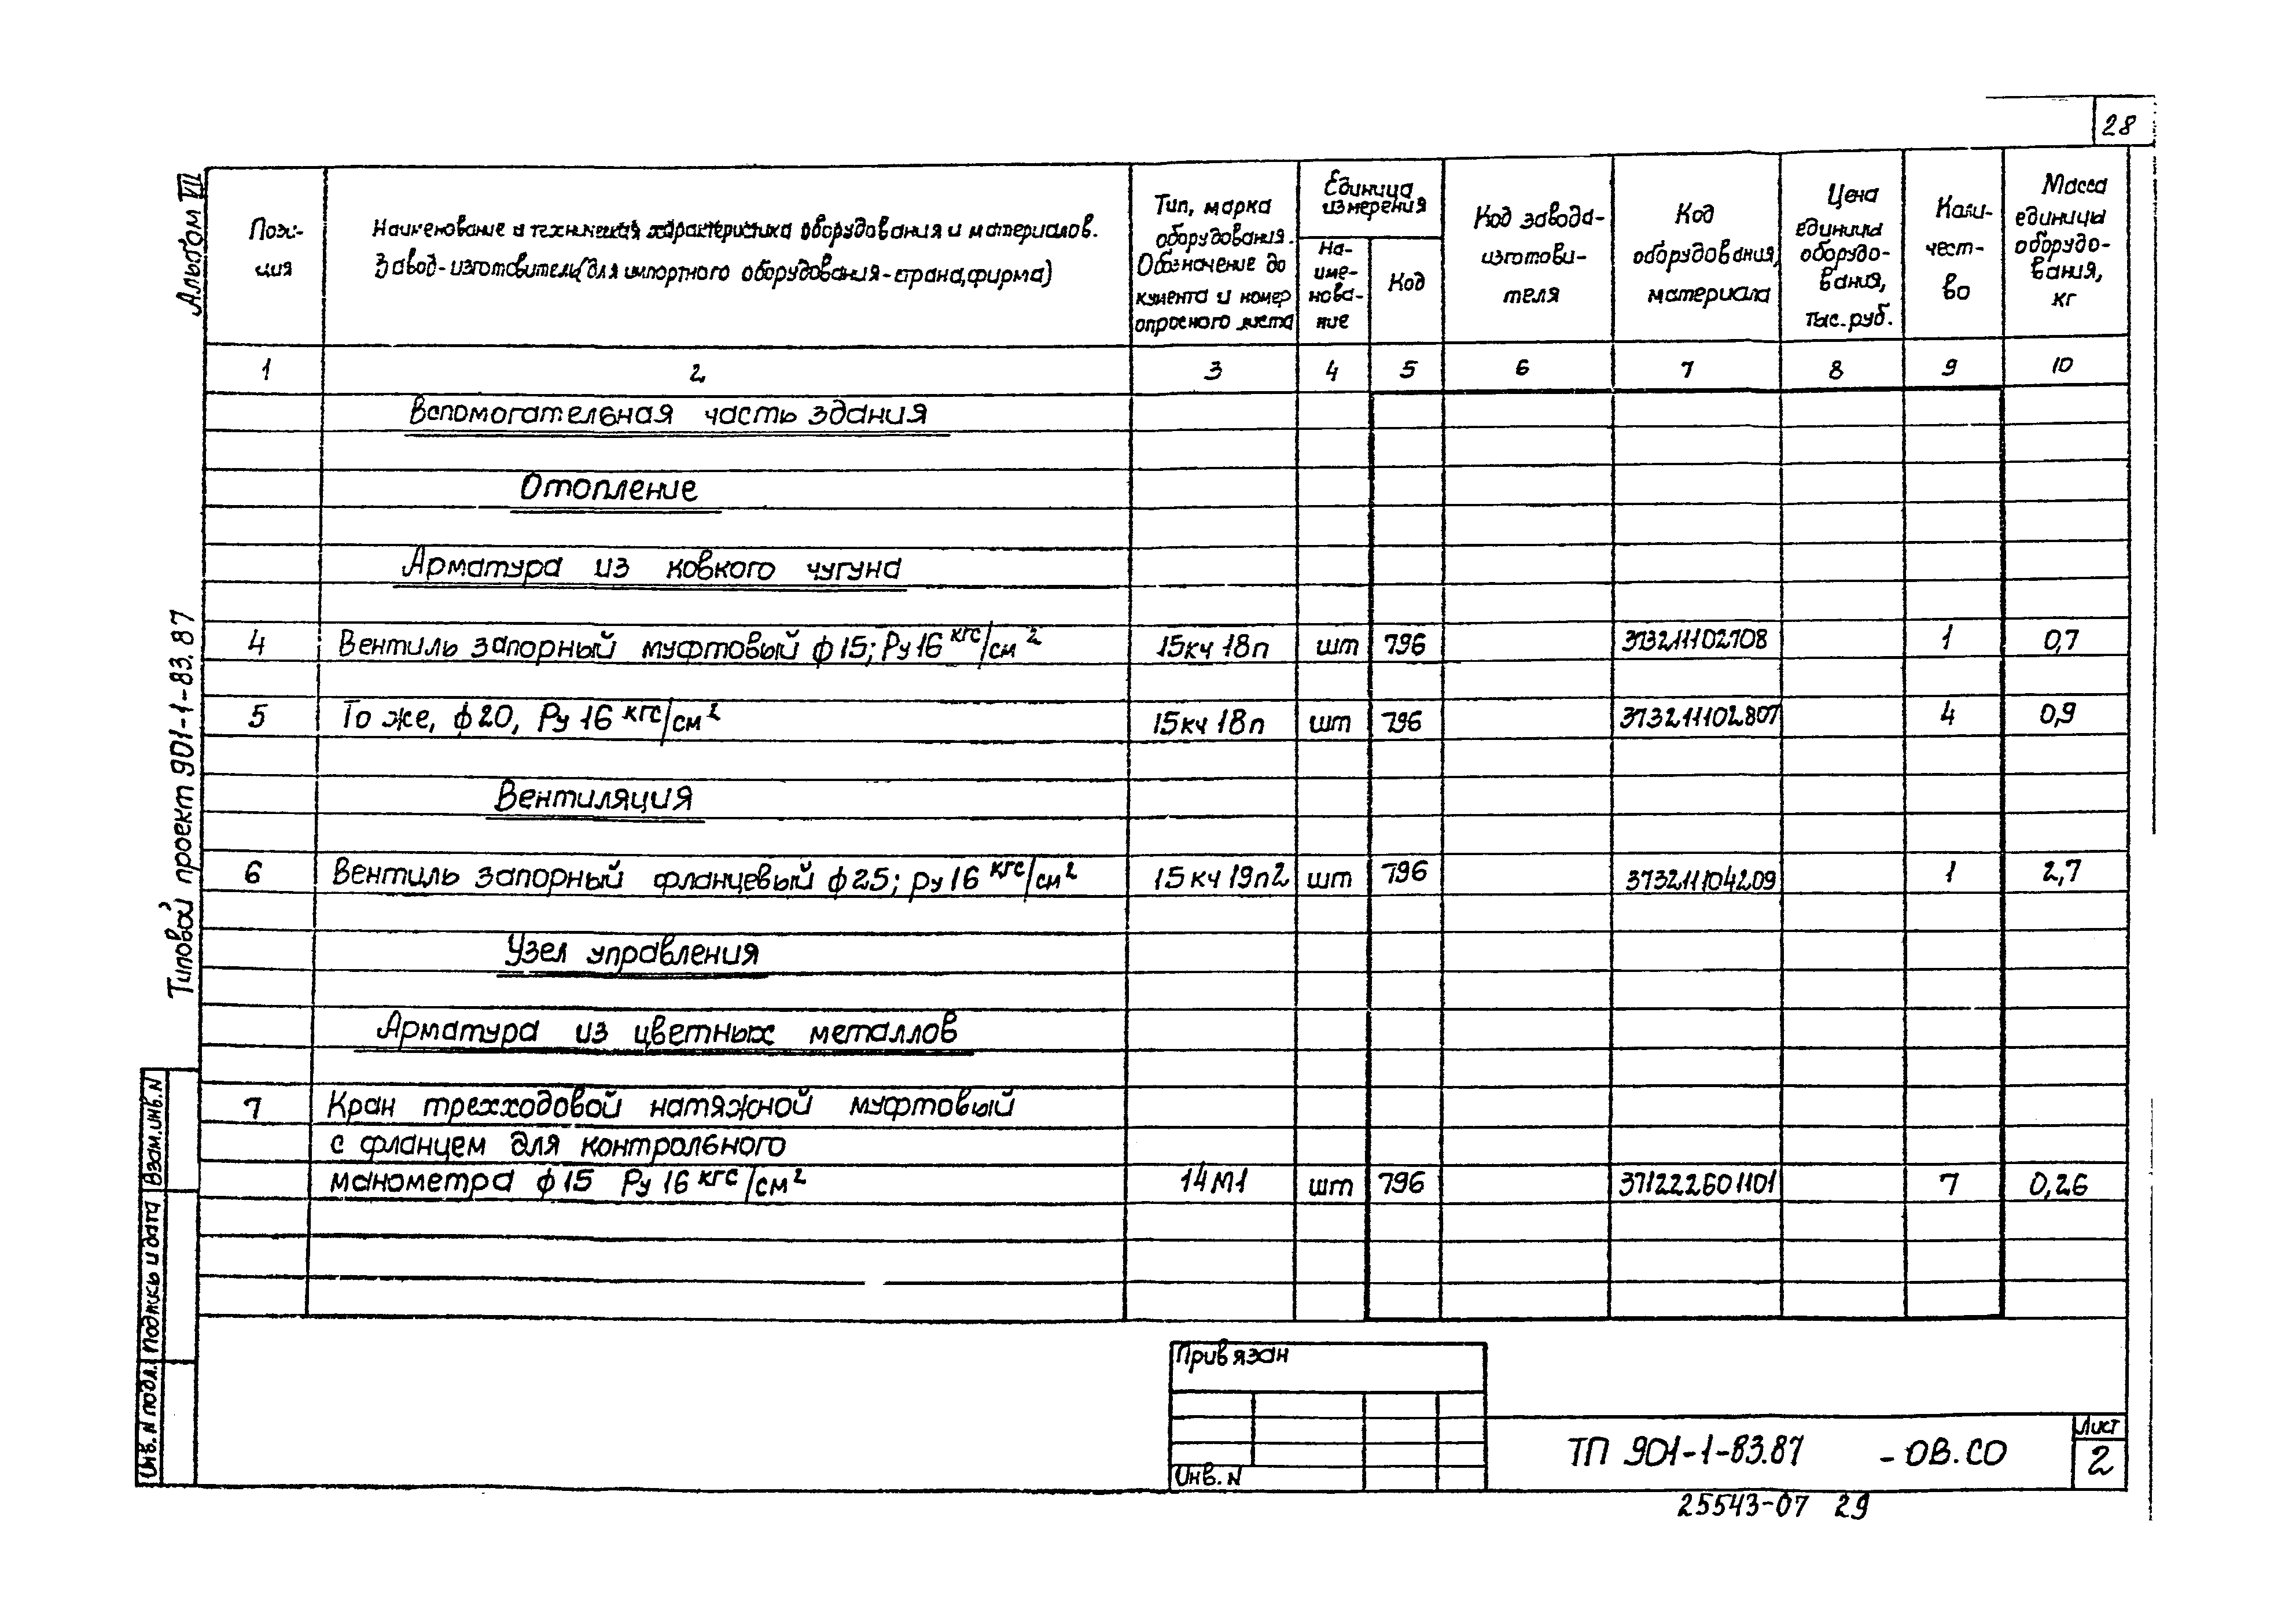 28
Альбом VII
Пози-
ция
Наименование и техническая характеристика оборудования и материалов.
Завод-изготовитель (для импортного оборудования-страна, фирма)
Тип, марка
оборудования.
Обозначение до
кумента и номер
опросного листа
Единица
измерения
На-
име-
нова-
ние
Код
Код завода-
изготови-
теля
Код
оборудования,
материала
Цена
единицы
оборудо-
вания,
тыс. руб.
Коли-
чест-
во
Масса
единицы
оборудо-
вания,
кг
1 2 3 4 5 6 7 8 9 10
Вспомогательная часть здания
Отопление
Арматура из ковкого чугуна
4 Вентиль запорный муфтовый ф15; Ру 16 кгс/см² 15кч 18п шт 796 373211102708 1 0,7
5 То же, ф20, Ру 16 кгс/см² 15кч 18п шт 796 373211102807 4 0,9
Вентиляция
6 Вентиль запорный фланцевый ф25; ру 16 кгс/см² 15кч 19п2 шт 796 373211104209 1 2,7
Узел управления
Арматура из цветных металлов
7 Кран трехходовой натяжной муфтовый
с фланцем для контрольного
манометра ф15 Ру 16 кгс/см² 14М1 шт 796 371222601101 7 0,26
Типовой проект 901-1-83.87
Взам. инв. N
Подпись и дата
Инв. N подл.
Привязан
Инв. N
ТП 901-1-83.87 -ОВ.СО
Лист
2
25543-07 29